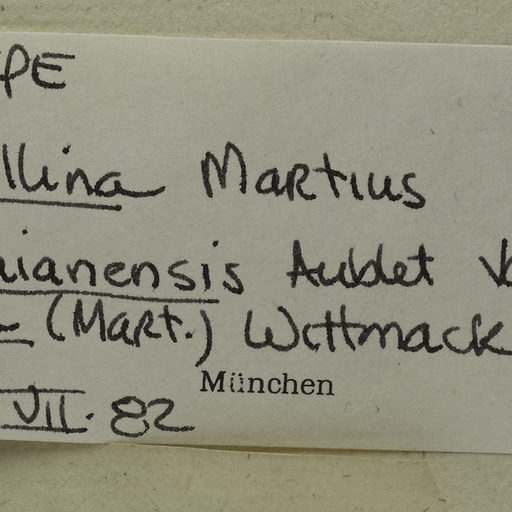 PE
llina Martius
uianensis Aublet
(Mart.) Wittmack
München
VII. 82